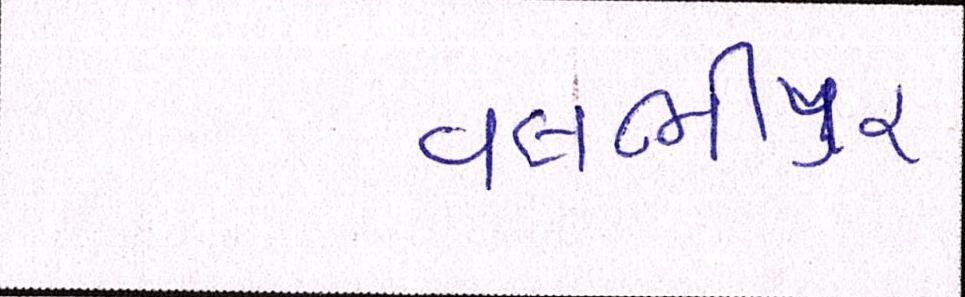 વલભીપુર